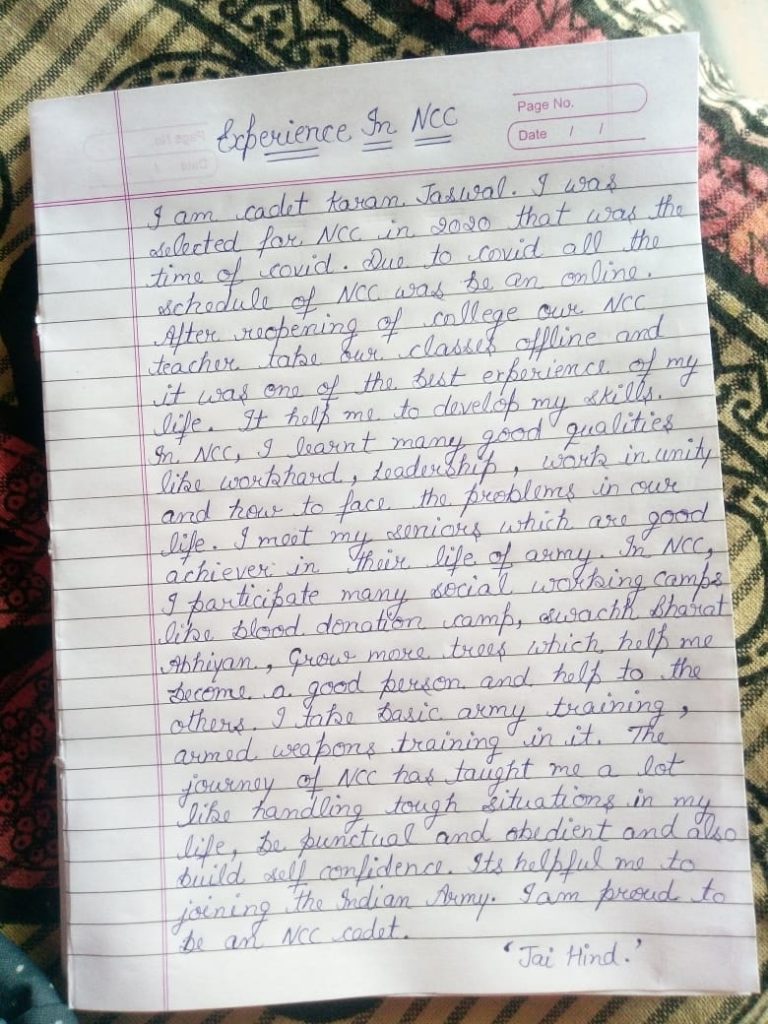 Experience In NCC
Page No.
Date / /
I am cadet Karan Jaswal. I was
selected for NCC in 2020 that was the
time of covid. Due to covid all the
schedule of NCC was be an online.
After reopening of college our NCC
teacher take our classes offline and
it was one of the best experience of my
life. It help me to develop my skills.
In NCC, I learnt many good qualities
like workhard, Leadership, work in unity
and how to face the problems in our
life. I meet my seniors which are good
achiever in their life of army. In NCC,
I participate many social working camps
like blood donation camp, swachh Bharat
Abhiyan, Grow more trees which help me
become a good person and help to the
others. I take basic army training,
armed weapons training in it. The
journey of NCC has taught me a lot
like handling tough situations in my
life, be punctual and obedient and also
build self confidence. Its helpful me to
joining the Indian Army. I am proud to
be an NCC cadet.
'Jai Hind.'